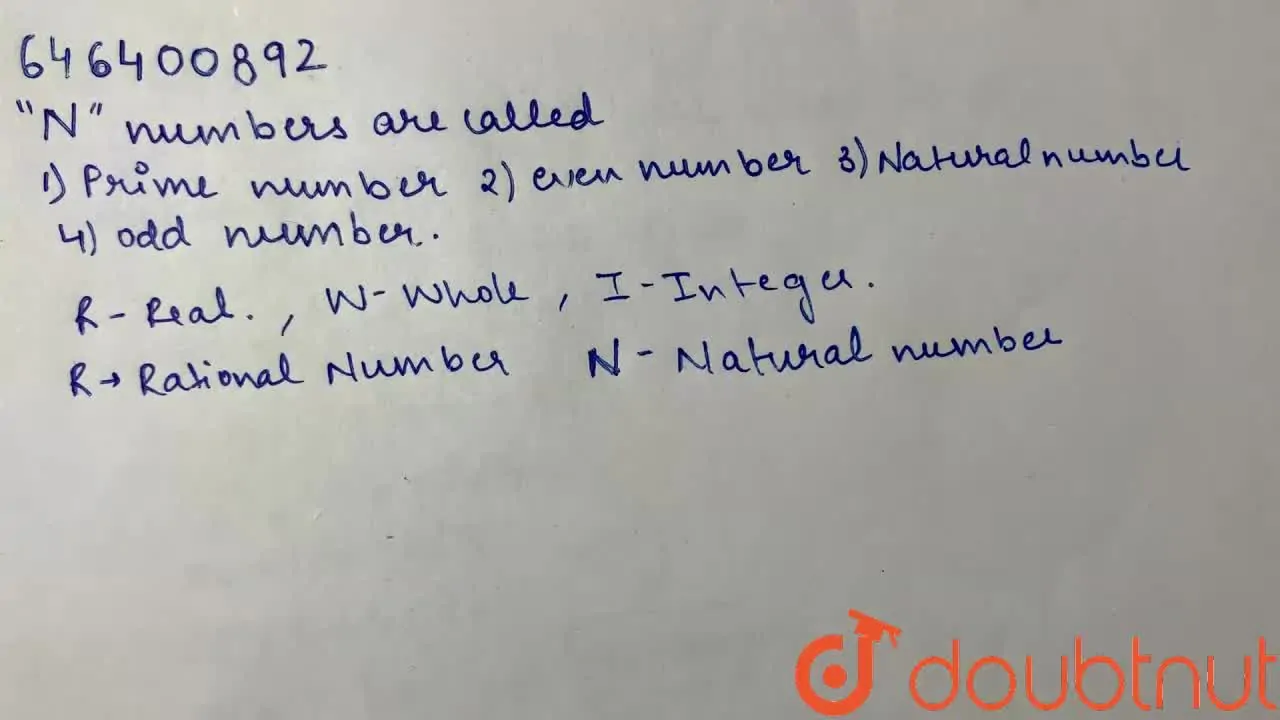 646400892
"N" numbers are called
1) Prime number 2) even number 3) Natural number
4) odd number.
R - Real. , W - Whole , I - Integer.
R → Rational Number N - Natural number
doubtnut